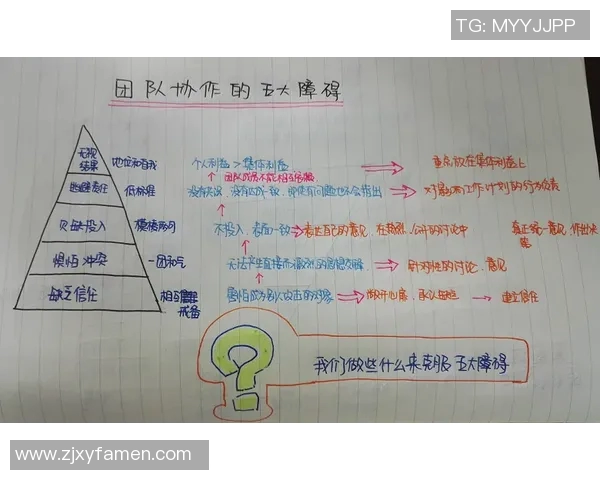 TG: MYYJJPP
团队协作的五大障碍
无视结果 地位和自我 个人利益 > 集体利益 重点放在集体利益上
逃避责任 低标准 没有共识、没有达成一致，即使有问题也不会指出 对影响工作计划的行为负责
欠缺投入 模棱两可 不投入，表面一致 表达自己的意见，在热烈、公开的讨论中 真正统一意见，作出决策
惧怕冲突 一团和气 针对性的讨论、意见
缺乏信任 相互戒备 害怕成为别人攻击的对象 敞开心扉，承认缺点 建立信任
我们做些什么来克服五大障碍
www.zjxyfamen.com